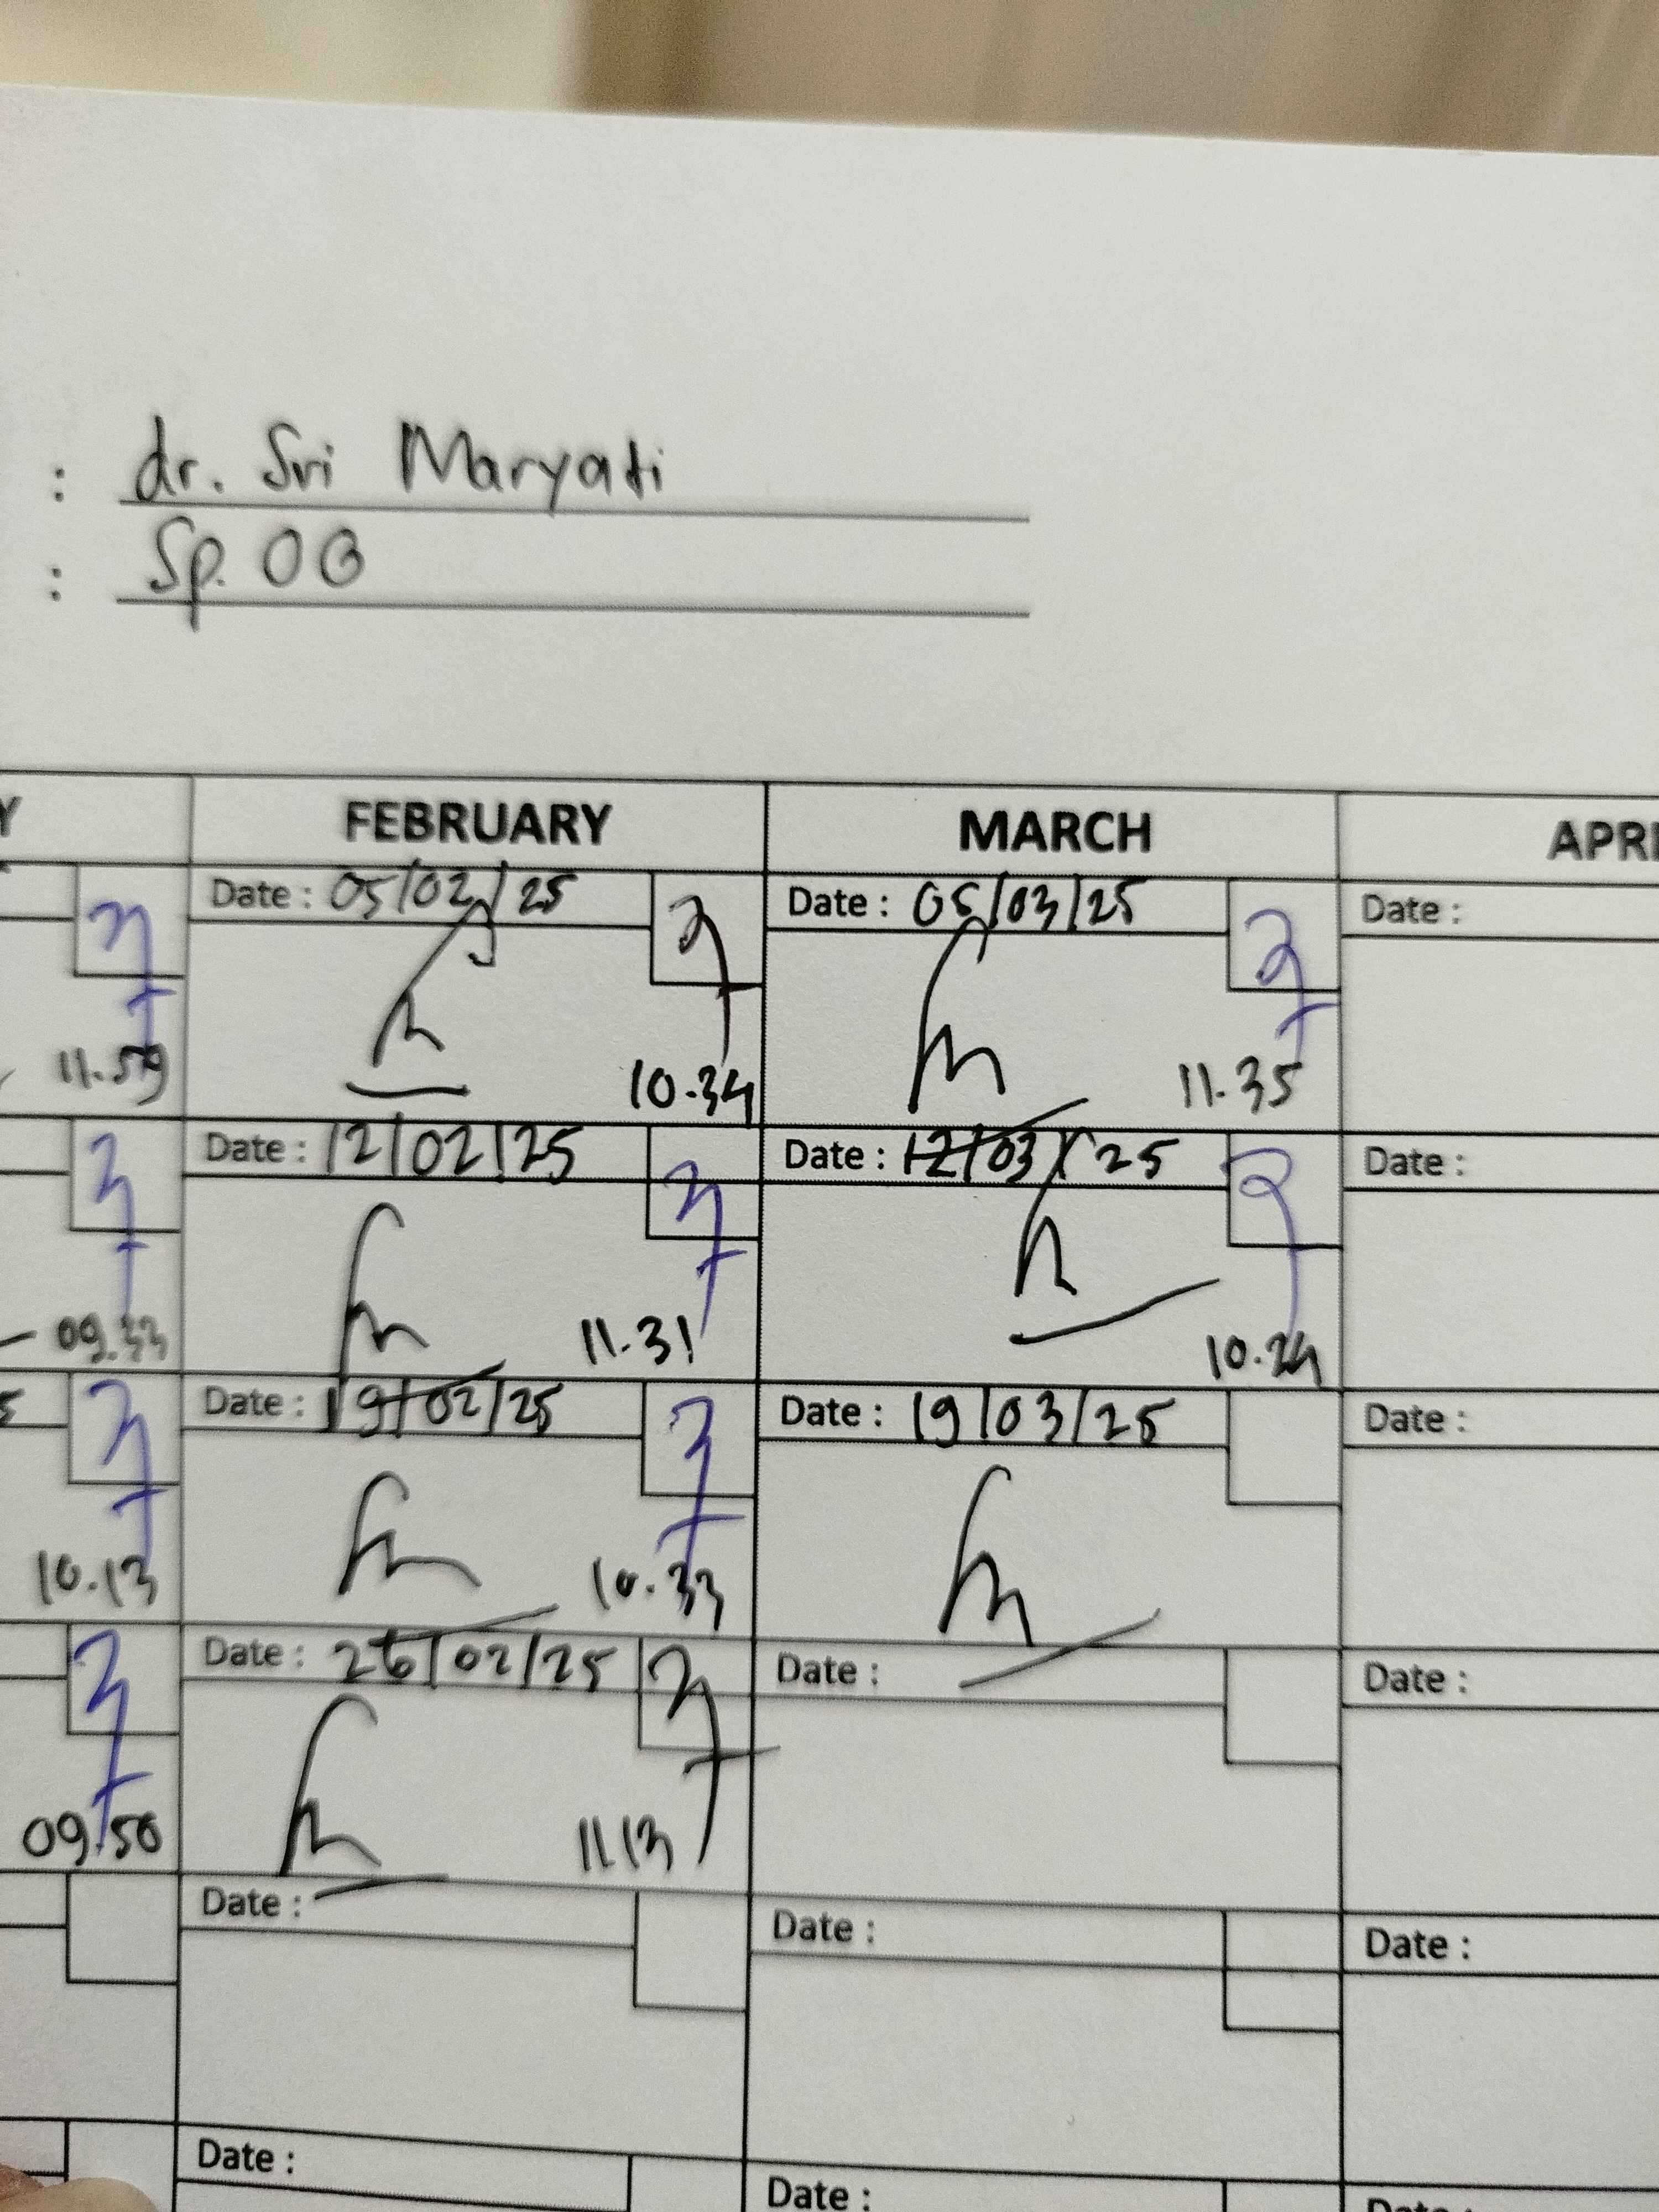 : dr. Sri Maryati
: Sp. OG
Y FEBRUARY MARCH APRI
Date : 05/02/25 Date : 05/03/25 Date :
11.59 10.34 11.35
Date : 12/02/25 Date : 12/03/25 Date :
09.33 11.31 10.24
5 Date : 19/02/25 Date : 19/03/25 Date :
10.13 10.33
Date : 26/02/25 Date : Date :
09.50 11.13
Date : Date : Date :
Date : Date : Date :